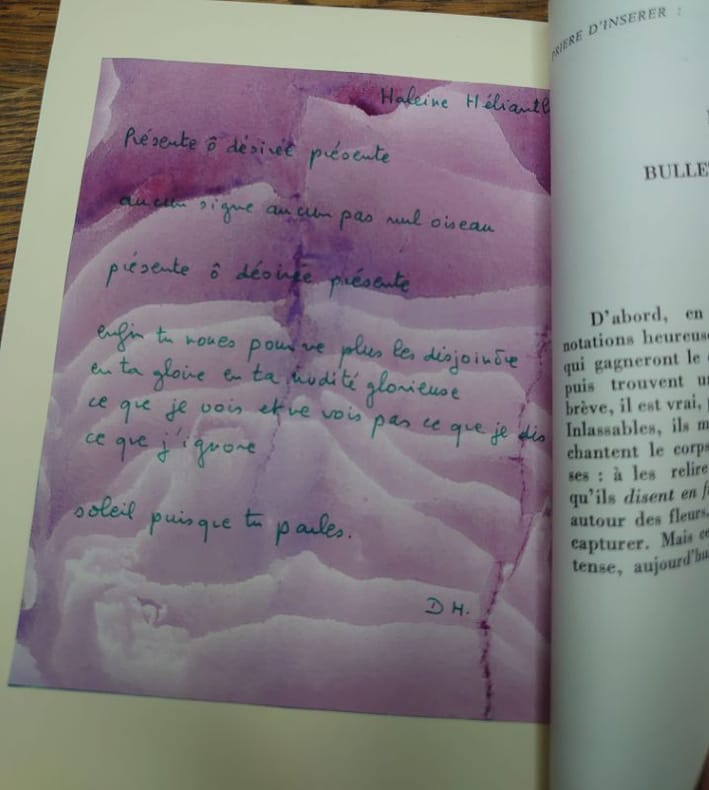 Haleine Hélianth
Présente ô désirée présente
aucun signe aucun pas nul oiseau
présente ô désirée présente
enfin tu noues pour ne plus les disjoindre
en ta gloire en ta nudité glorieuse
ce que je vois et ne vois pas ce que je dis
ce que j'ignore
soleil puisque tu parles.
D H.
PRIERE D'INSERER :
BULLE
D'abord, en
notations heureus
qui gagneront le
puis trouvent u
brève, il est vrai,
Inlassables, ils m
chantent le corps
ses : à les relire
qu'ils disent en f
autour des fleurs,
capturer. Mais ce
tense, aujourd'hui